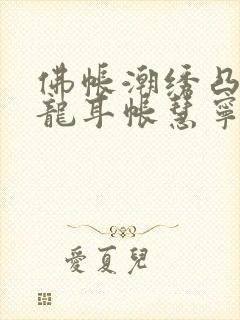 佛帳潮绣凸
龍耳帳慧寧
愛夏兒